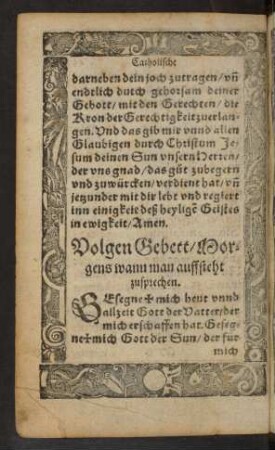 Catholische
darneben dein joch zutragen/ vñ
endtlich durch gehorsam deiner
Gebott/ mit den Gerechten/ die
Kron der Gerechtigkeit zuerlan-
gen. Vnd das gib mir vnnd allen
Glaubigen durch Christum Je-
sum deinen Sun vnsern Herren/
der vns gnad/ das gůt zubegern
vnd zuwürcken/ verdient hat/ vñ
jezunder mit dir lebt vnd regiert
inn einigkeit deß heyligē Geistes
in ewigkeit/ Amen.
Volgen Gebett/ Mor-
gens wann man auffsteht
zusprechen.
GEsegne ✠ mich heut vnnd
allzeit Gott der Vatter/ der
mich erschaffen hat. Geseg-
ne ✠ mich Gott der Sun/ der fur
mich